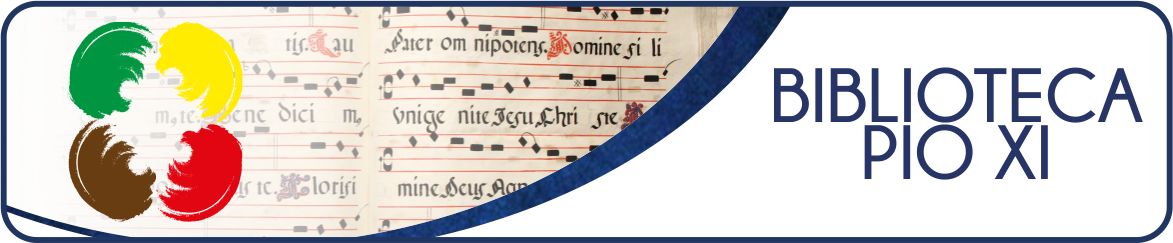 tis. Lau
Pater om nipotens. Domine fi li
m, te. Bene dici m,
Vnige nite Jesu Chri ste
us te. Glorifi
mine Deus Agn
BIBLIOTECA
PIO XI